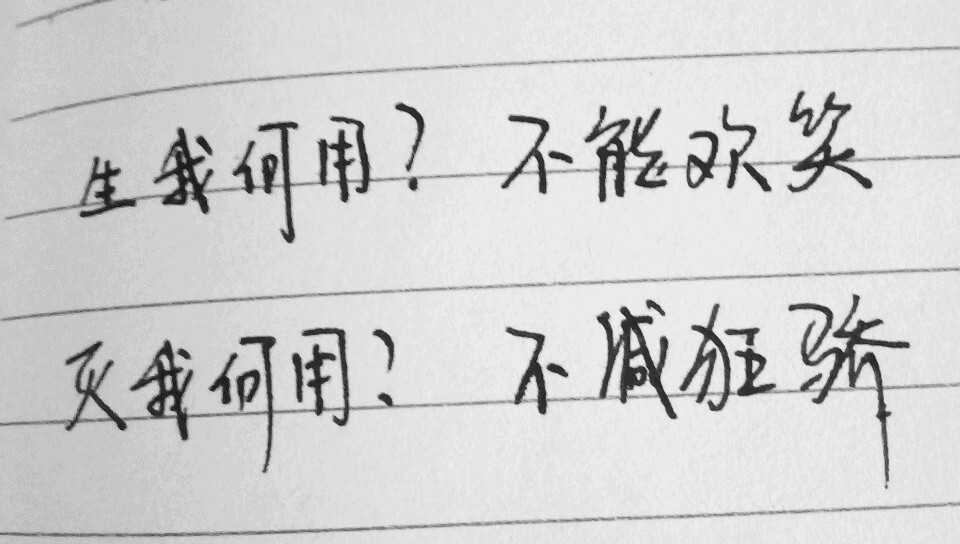 生我何用？不能欢笑
灭我何用？不减狂骄